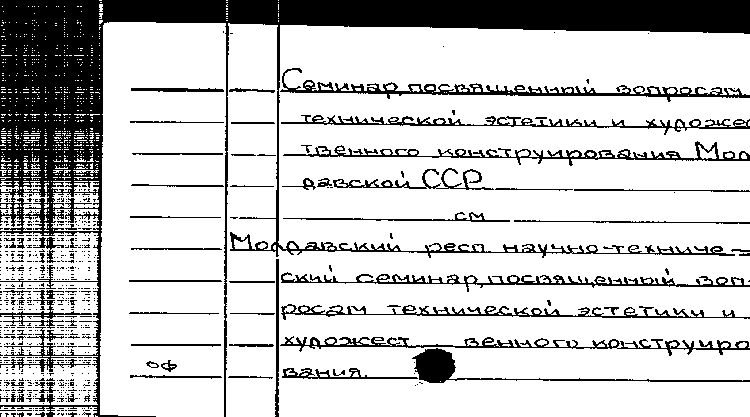 Семинар, посвященный вопросам
технической эстетики и художес
твенного конструирования Мол
давской ССР
см
Молдавский респ. научно-техниче-
ский семинар, посвященный воп-
росам технической эстетики и
художест венного конструиро
оф вания.